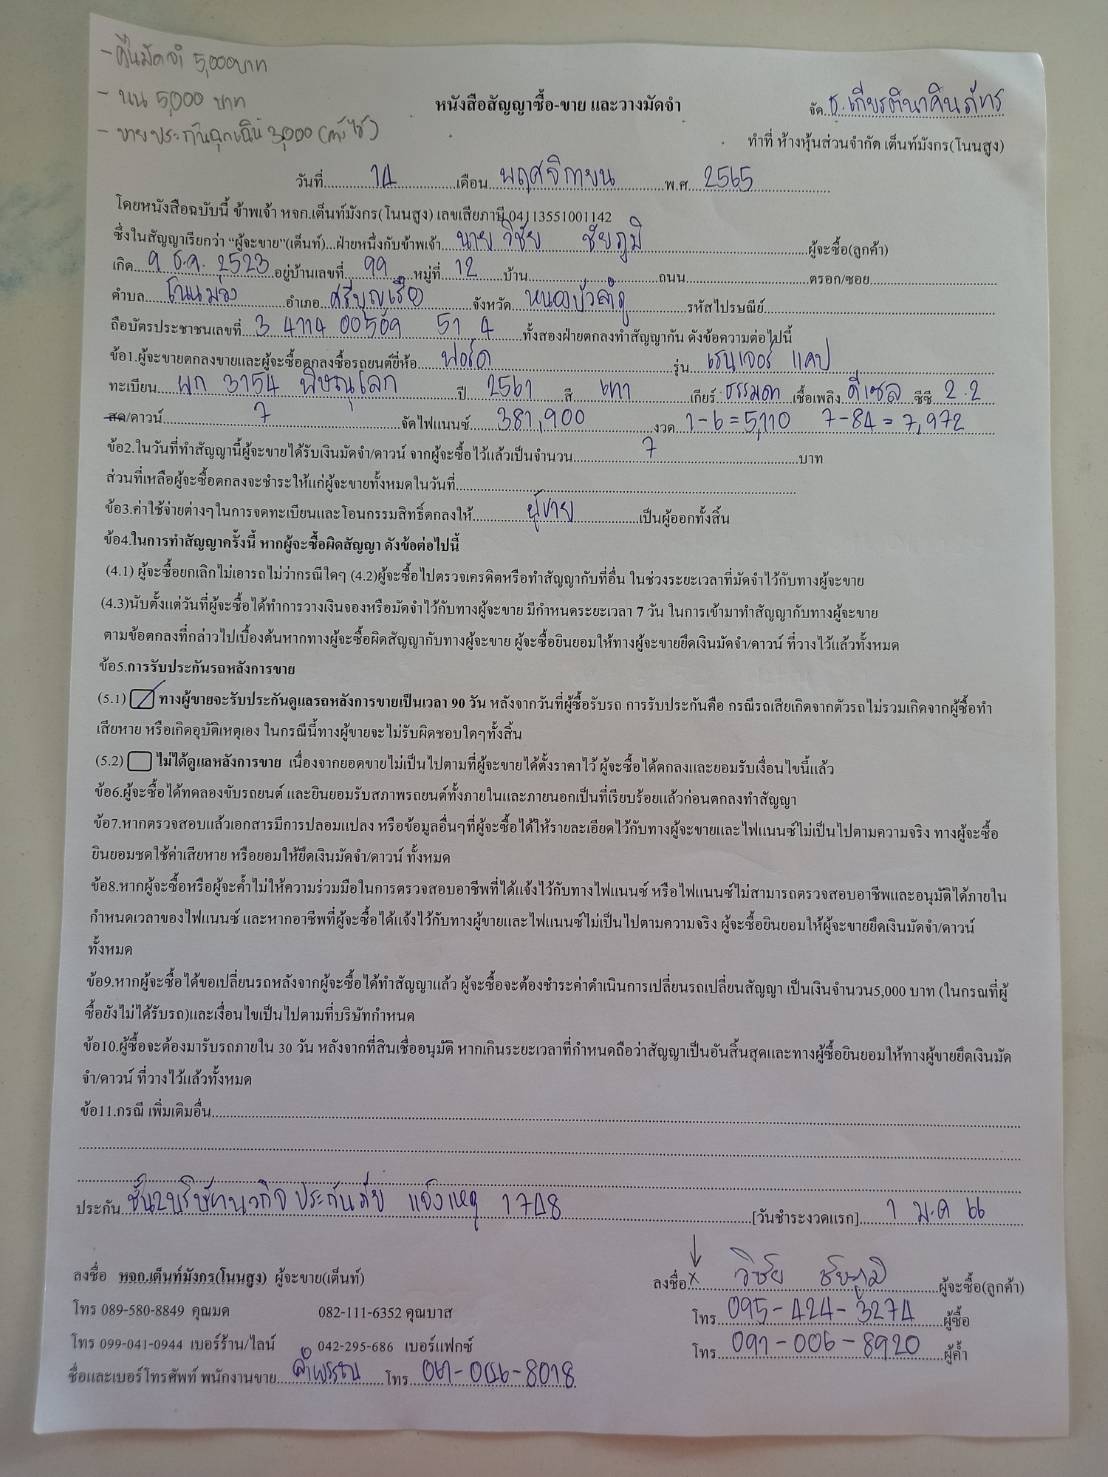 - คืนมัดจำ 5,000 บาท
- นน 5,000 บาท
- ขายประกันฉุกเฉิน 3,000 (ค่าใช้)
หนังสือสัญญาซื้อ-ขาย และวางมัดจำ
จัด ธ.เกียรตินาคินภัทร
ทำที่ ห้างหุ้นส่วนจำกัด เต็นท์มังกร(โนนสูง)
วันที่ 14 เดือน พฤศจิกายน พ.ศ. 2565
โดยหนังสือฉบับนี้ ข้าพเจ้า หจก.เต็นท์มังกร(โนนสูง) เลขเสียภาษี 04113551001142
ซึ่งในสัญญาเรียกว่า “ผู้จะขาย”(เต็นท์)...ฝ่ายหนึ่งกับข้าพเจ้า นาย วิชัย ชัยภูมิ ผู้จะซื้อ(ลูกค้า)
เกิด 9 ธ.ค. 2523 อยู่บ้านเลขที่ 99 หมู่ที่ 12 บ้าน ถนน ตรอก/ซอย
ตำบล โนนม่วง อำเภอ ศรีบุญเรือง จังหวัด หนองบัวลำภู รหัสไปรษณีย์
ถือบัตรประชาชนเลขที่ 3 4114 00509 51 4 ทั้งสองฝ่ายตกลงทำสัญญากัน ดังข้อความต่อไปนี้
ข้อ1.ผู้จะขายตกลงขายและผู้จะซื้อตกลงซื้อรถยนต์ยี่ห้อ ฟอร์ด รุ่น เรนเจอร์ แคป
ทะเบียน ผก 3154 พิษณุโลก ปี 2561 สี เทา เกียร์ ธรรมดา เชื้อเพลิง ดีเซล ซีซี 2.2
สด/ดาวน์ 7 จัดไฟแนนซ์ 381,900 งวด 1-6=5,110 7-84=7,972
ข้อ2.ในวันที่ทำสัญญานี้ผู้จะขายได้รับเงินมัดจำ/ดาวน์ จากผู้จะซื้อไว้แล้วเป็นจำนวน 7 บาท
ส่วนที่เหลือผู้จะซื้อตกลงจะชำระให้แก่ผู้จะขายทั้งหมดในวันที่
ข้อ3.ค่าใช้จ่ายต่างๆในการจดทะเบียนและโอนกรรมสิทธิ์ตกลงให้ ผู้ขาย เป็นผู้ออกทั้งสิ้น
ข้อ4.ในการทำสัญญาครั้งนี้ หากผู้จะซื้อผิดสัญญา ดังข้อต่อไปนี้
(4.1) ผู้จะซื้อยกเลิกไม่เอารถไม่ว่ากรณีใดๆ (4.2)ผู้จะซื้อไปตรวจเครดิตหรือทำสัญญากับที่อื่น ในช่วงระยะเวลาที่มัดจำไว้กับทางผู้จะขาย
(4.3)นับตั้งแต่วันที่ผู้จะซื้อได้ทำการวางเงินจองหรือมัดจำไว้กับทางผู้จะขาย มีกำหนดระยะเวลา 7 วัน ในการเข้ามาทำสัญญากับทางผู้จะขาย
ตามข้อตกลงที่กล่าวไปเบื้องต้นหากทางผู้จะซื้อผิดสัญญากับทางผู้จะขาย ผู้จะซื้อยินยอมให้ทางผู้จะขายยึดเงินมัดจำ/ดาวน์ ที่วางไว้แล้วทั้งหมด
ข้อ5.การรับประกันรถหลังการขาย
(5.1) ทางผู้ขายจะรับประกันดูแลรถหลังการขายเป็นเวลา 90 วัน หลังจากวันที่ผู้ซื้อรับรถ การรับประกันคือ กรณีรถเสียเกิดจากตัวรถไม่รวมเกิดจากผู้ซื้อทำ
เสียหาย หรือเกิดอุบัติเหตุเอง ในกรณีนี้ทางผู้ขายจะไม่รับผิดชอบใดๆทั้งสิ้น
(5.2) ไม่ได้ดูแลหลังการขาย เนื่องจากยอดขายไม่เป็นไปตามที่ผู้จะขายได้ตั้งราคาไว้ ผู้จะซื้อได้ตกลงและยอมรับเงื่อนไขนี้แล้ว
ข้อ6.ผู้จะซื้อได้ทดลองขับรถยนต์ และยินยอมรับสภาพรถยนต์ทั้งภายในและภายนอกเป็นที่เรียบร้อยแล้วก่อนตกลงทำสัญญา
ข้อ7.หากตรวจสอบแล้วเอกสารมีการปลอมแปลง หรือข้อมูลอื่นๆที่ผู้จะซื้อได้ให้รายละเอียดไว้กับทางผู้จะขายและไฟแนนซ์ไม่เป็นไปตามความจริง ทางผู้จะซื้อ
ยินยอมชดใช้ค่าเสียหาย หรือยอมให้ยึดเงินมัดจำ/ดาวน์ ทั้งหมด
ข้อ8.หากผู้จะซื้อหรือผู้จะค้ำไม่ให้ความร่วมมือในการตรวจสอบอาชีพที่ได้แจ้งไว้กับทางไฟแนนซ์ หรือไฟแนนซ์ไม่สามารถตรวจสอบอาชีพและอนุมัติได้ภายใน
กำหนดเวลาของไฟแนนซ์ และหากอาชีพที่ผู้จะซื้อได้แจ้งไว้กับทางผู้ขายและไฟแนนซ์ไม่เป็นไปตามความจริง ผู้จะซื้อยินยอมให้ผู้จะขายยึดเงินมัดจำ/ดาวน์
ทั้งหมด
ข้อ9.หากผู้จะซื้อได้ขอเปลี่ยนรถหลังจากผู้จะซื้อได้ทำสัญญาแล้ว ผู้จะซื้อจะต้องชำระค่าดำเนินการเปลี่ยนรถเปลี่ยนสัญญา เป็นเงินจำนวน5,000 บาท (ในกรณีที่ผู้
ซื้อยังไม่ได้รับรถ)และเงื่อนไขเป็นไปตามที่บริษัทกำหนด
ข้อ10.ผู้ซื้อจะต้องมารับรถภายใน 30 วัน หลังจากที่สินเชื่ออนุมัติ หากเกินระยะเวลาที่กำหนดถือว่าสัญญาเป็นอันสิ้นสุดและทางผู้ซื้อยินยอมให้ทางผู้ขายยึดเงินมัด
จำ/ดาวน์ ที่วางไว้แล้วทั้งหมด
ข้อ11.กรณี เพิ่มเติมอื่น
ประกัน ชั้น2บริษัทนวกิจประกันภัย แจ้งเหตุ 1748 [วันชำระงวดแรก] 1 ม.ค 66
ลงชื่อ หจก.เต็นท์มังกร(โนนสูง) ผู้จะขาย(เต็นท์) ลงชื่อ x วิชัย ชัยภูมิ ผู้จะซื้อ(ลูกค้า)
โทร 089-580-8849 คุณมด 082-111-6352 คุณบาส โทร 095-424-3274 ผู้ซื้อ
โทร 099-041-0944 เบอร์ร้าน/ไลน์ 042-295-686 เบอร์แฟกซ์ โทร 091-006-8920 ผู้ค้ำ
ชื่อและเบอร์โทรศัพท์ พนักงานขาย คำพรรณ โทร 061-046-8018